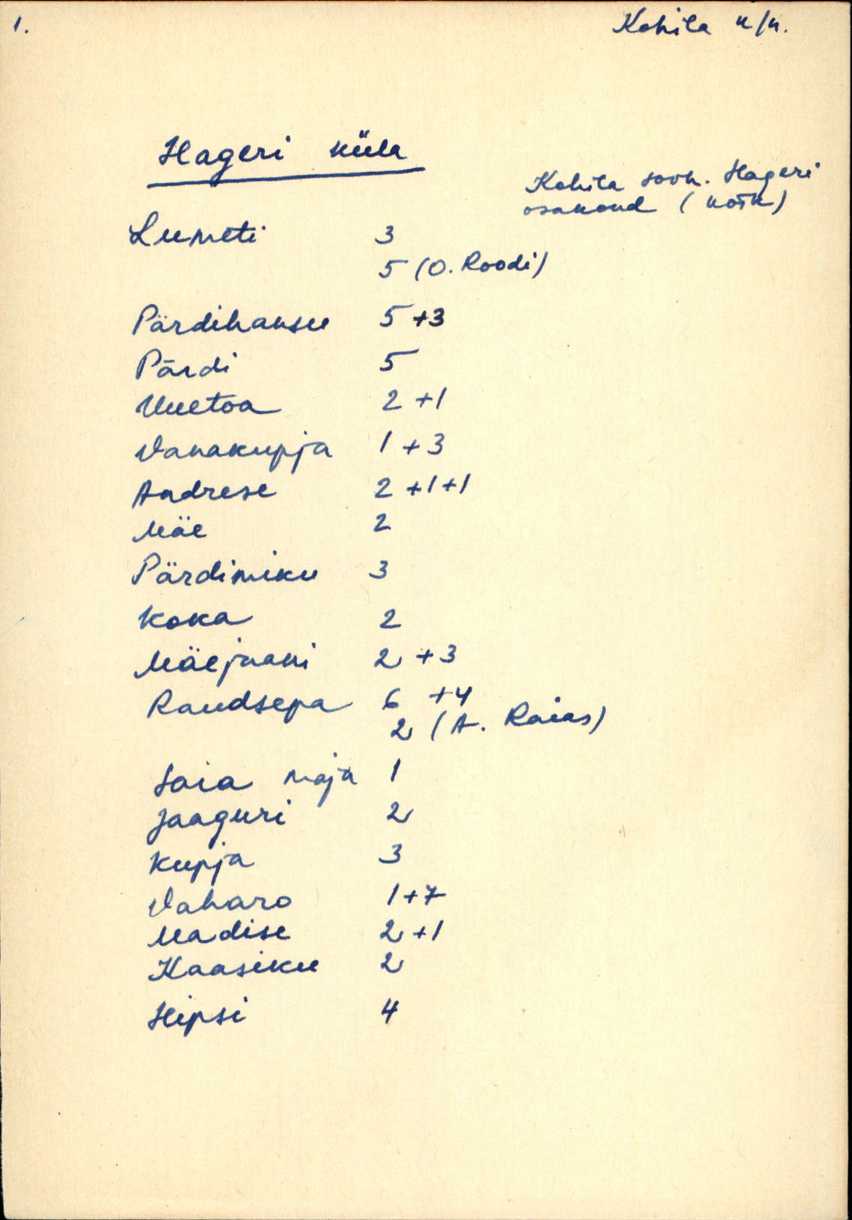 1.
Kohila k/n.
Hageri küla
Kohila sovh. Hageri
osakond (kõik)
Lumeti 3
5 (O. Roodi)
Pärdihansu 5 +3
Pärdi 5
Uuetoa 2 +1
Vanakupja 1 + 3
Andrese 2 +1+1
Mäe 2
Pärdimiku 3
Koka 2
Mäejaani 2 +3
Raudsepa 6 +4
2 (A. Raias)
Saia maja 1
Jaaguri 2
Kupja 3
Vaharo 1+7
Madise 2 +1
Kaasiku 2
Hipsi 4